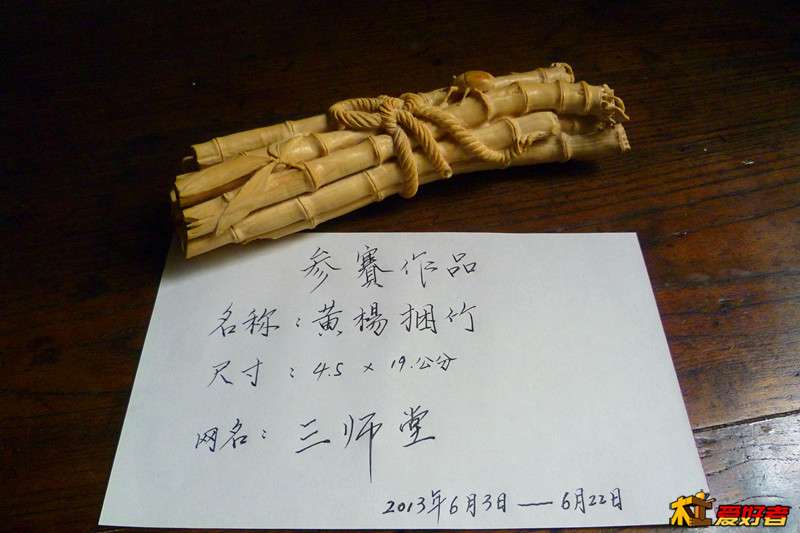 参賽作品
名称：黄楊捆竹
尺寸：4.5 × 19.公分
网名：三师堂
2013年6月3日——6月22日
木工爱好者